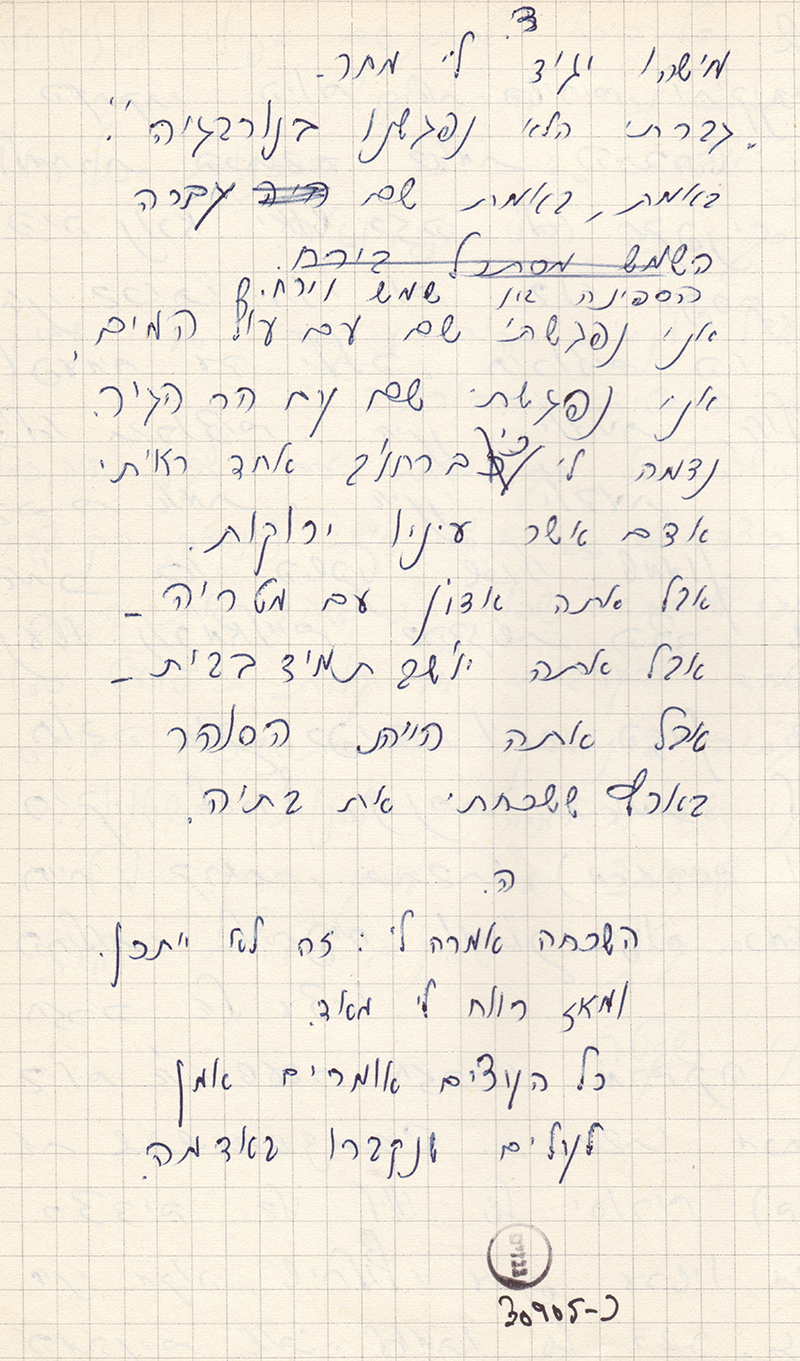 ד.
מישהו יגיד לי מחר.
"גברתי הלא נפגשנו בנורבגיה".
באמת, באמת שם היה עברה
השמש מסתכל בירח.
הספינה בין שמש וירח.
אני נפגשתי שם עם עוף המים,
אני נפגשתי שם עם הר הגיר.
נדמה לי כי ברחוב אחד ראיתי
אדם אשר עיניו ירוקות.
אבל אתה אדון עם מטריה –
אבל אתה יושב תמיד בבית –
אבל אתה היית הסוהר
בארץ ששכחתי את בתיה.
ה.
השכחה אמרה לי: זה לא ייתכן.
ומאז רווח לי מאד.
כל העצים אומרים אמן
לעלים שנקברו באדמה.
גנזים
30905-כ